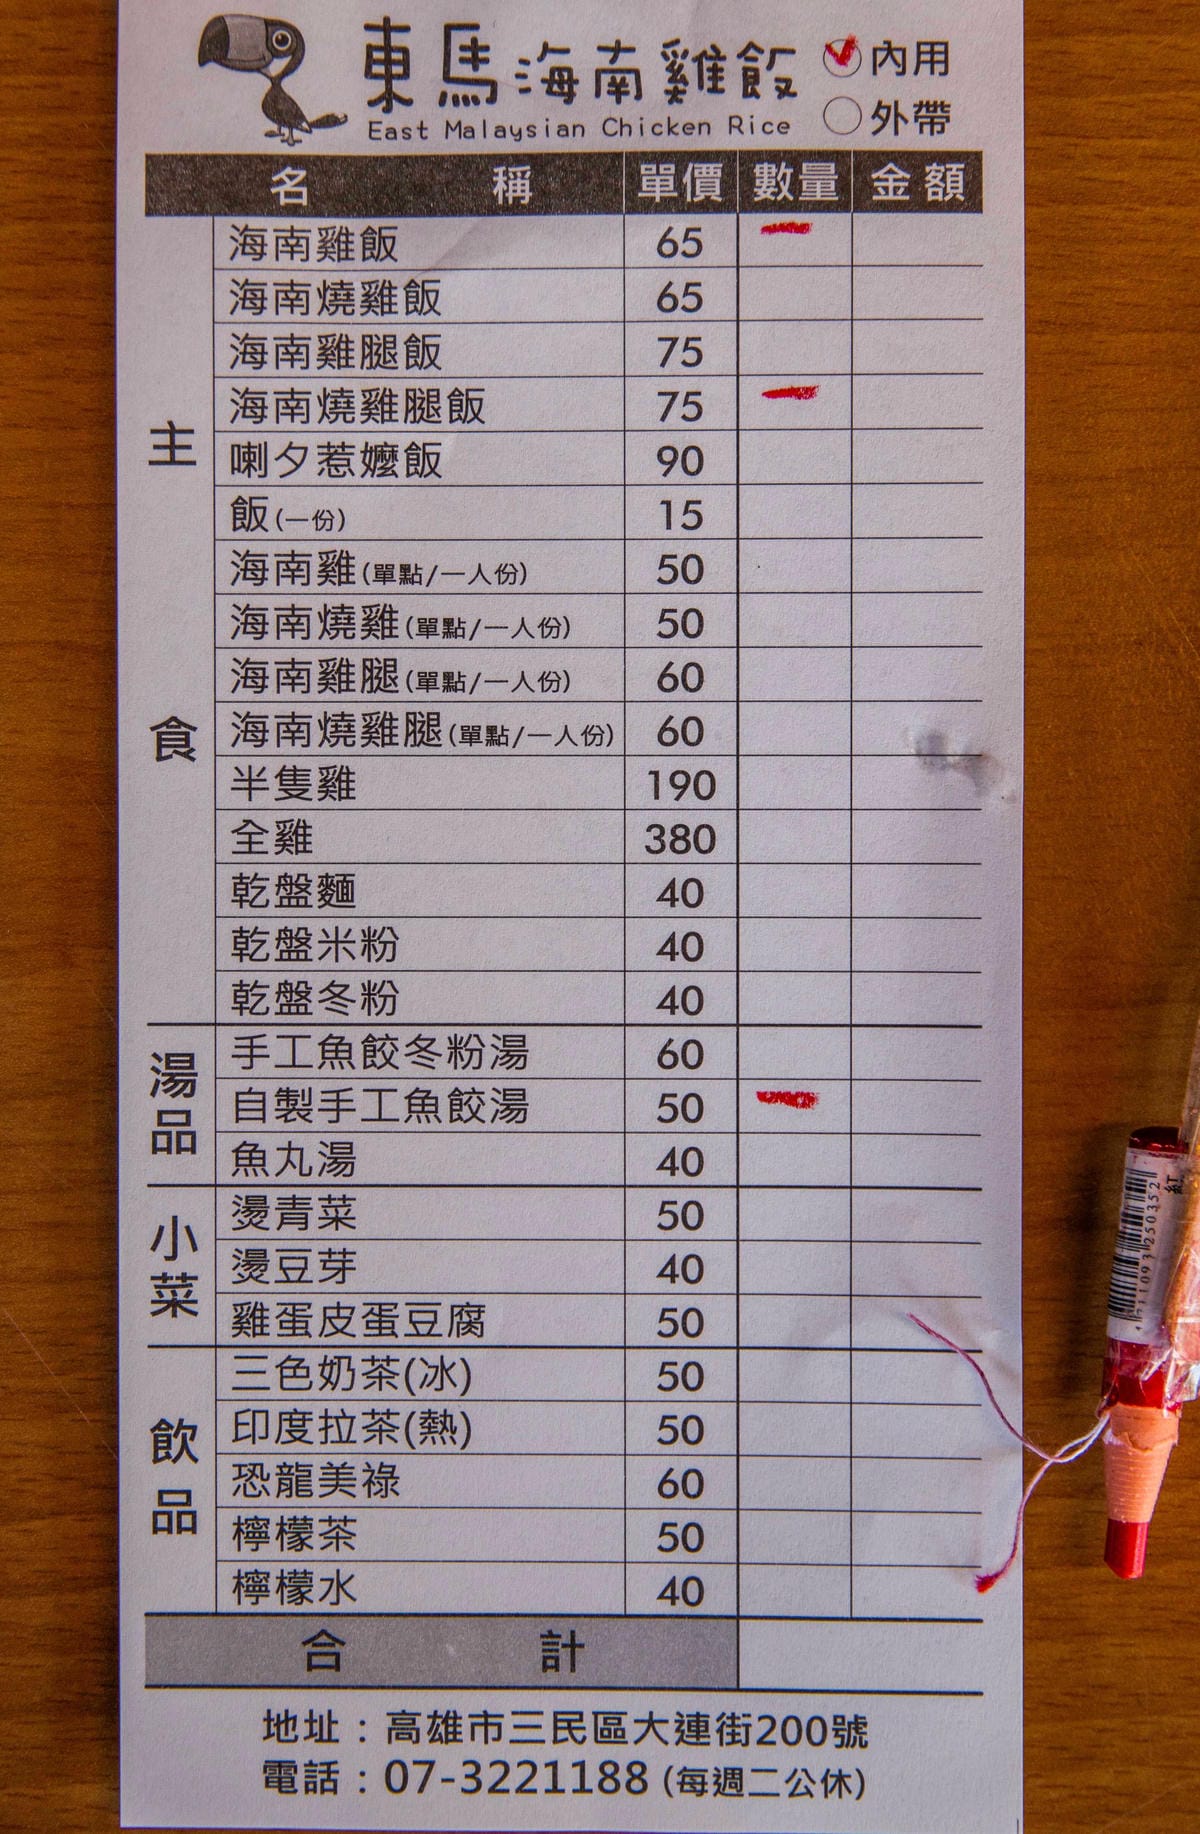 東馬海南雞飯
East Malaysian Chicken Rice
內用
外帶
名稱 單價 數量 金額
主食
海南雞飯 65
海南燒雞飯 65
海南雞腿飯 75
海南燒雞腿飯 75
喇夕惹嬤飯 90
飯(一份) 15
海南雞(單點/一人份) 50
海南燒雞(單點/一人份) 50
海南雞腿(單點/一人份) 60
海南燒雞腿(單點/一人份) 60
半隻雞 190
全雞 380
乾盤麵 40
乾盤米粉 40
乾盤冬粉 40
湯品
手工魚餃冬粉湯 60
自製手工魚餃湯 50
魚丸湯 40
小菜
燙青菜 50
燙豆芽 40
雞蛋皮蛋豆腐 50
飲品
三色奶茶(冰) 50
印度拉茶(熱) 50
恐龍美祿 60
檸檬茶 50
檸檬水 40
合計
地址：高雄市三民區大連街200號
電話：07-3221188 (每週二公休)
紅
4 711093 250352